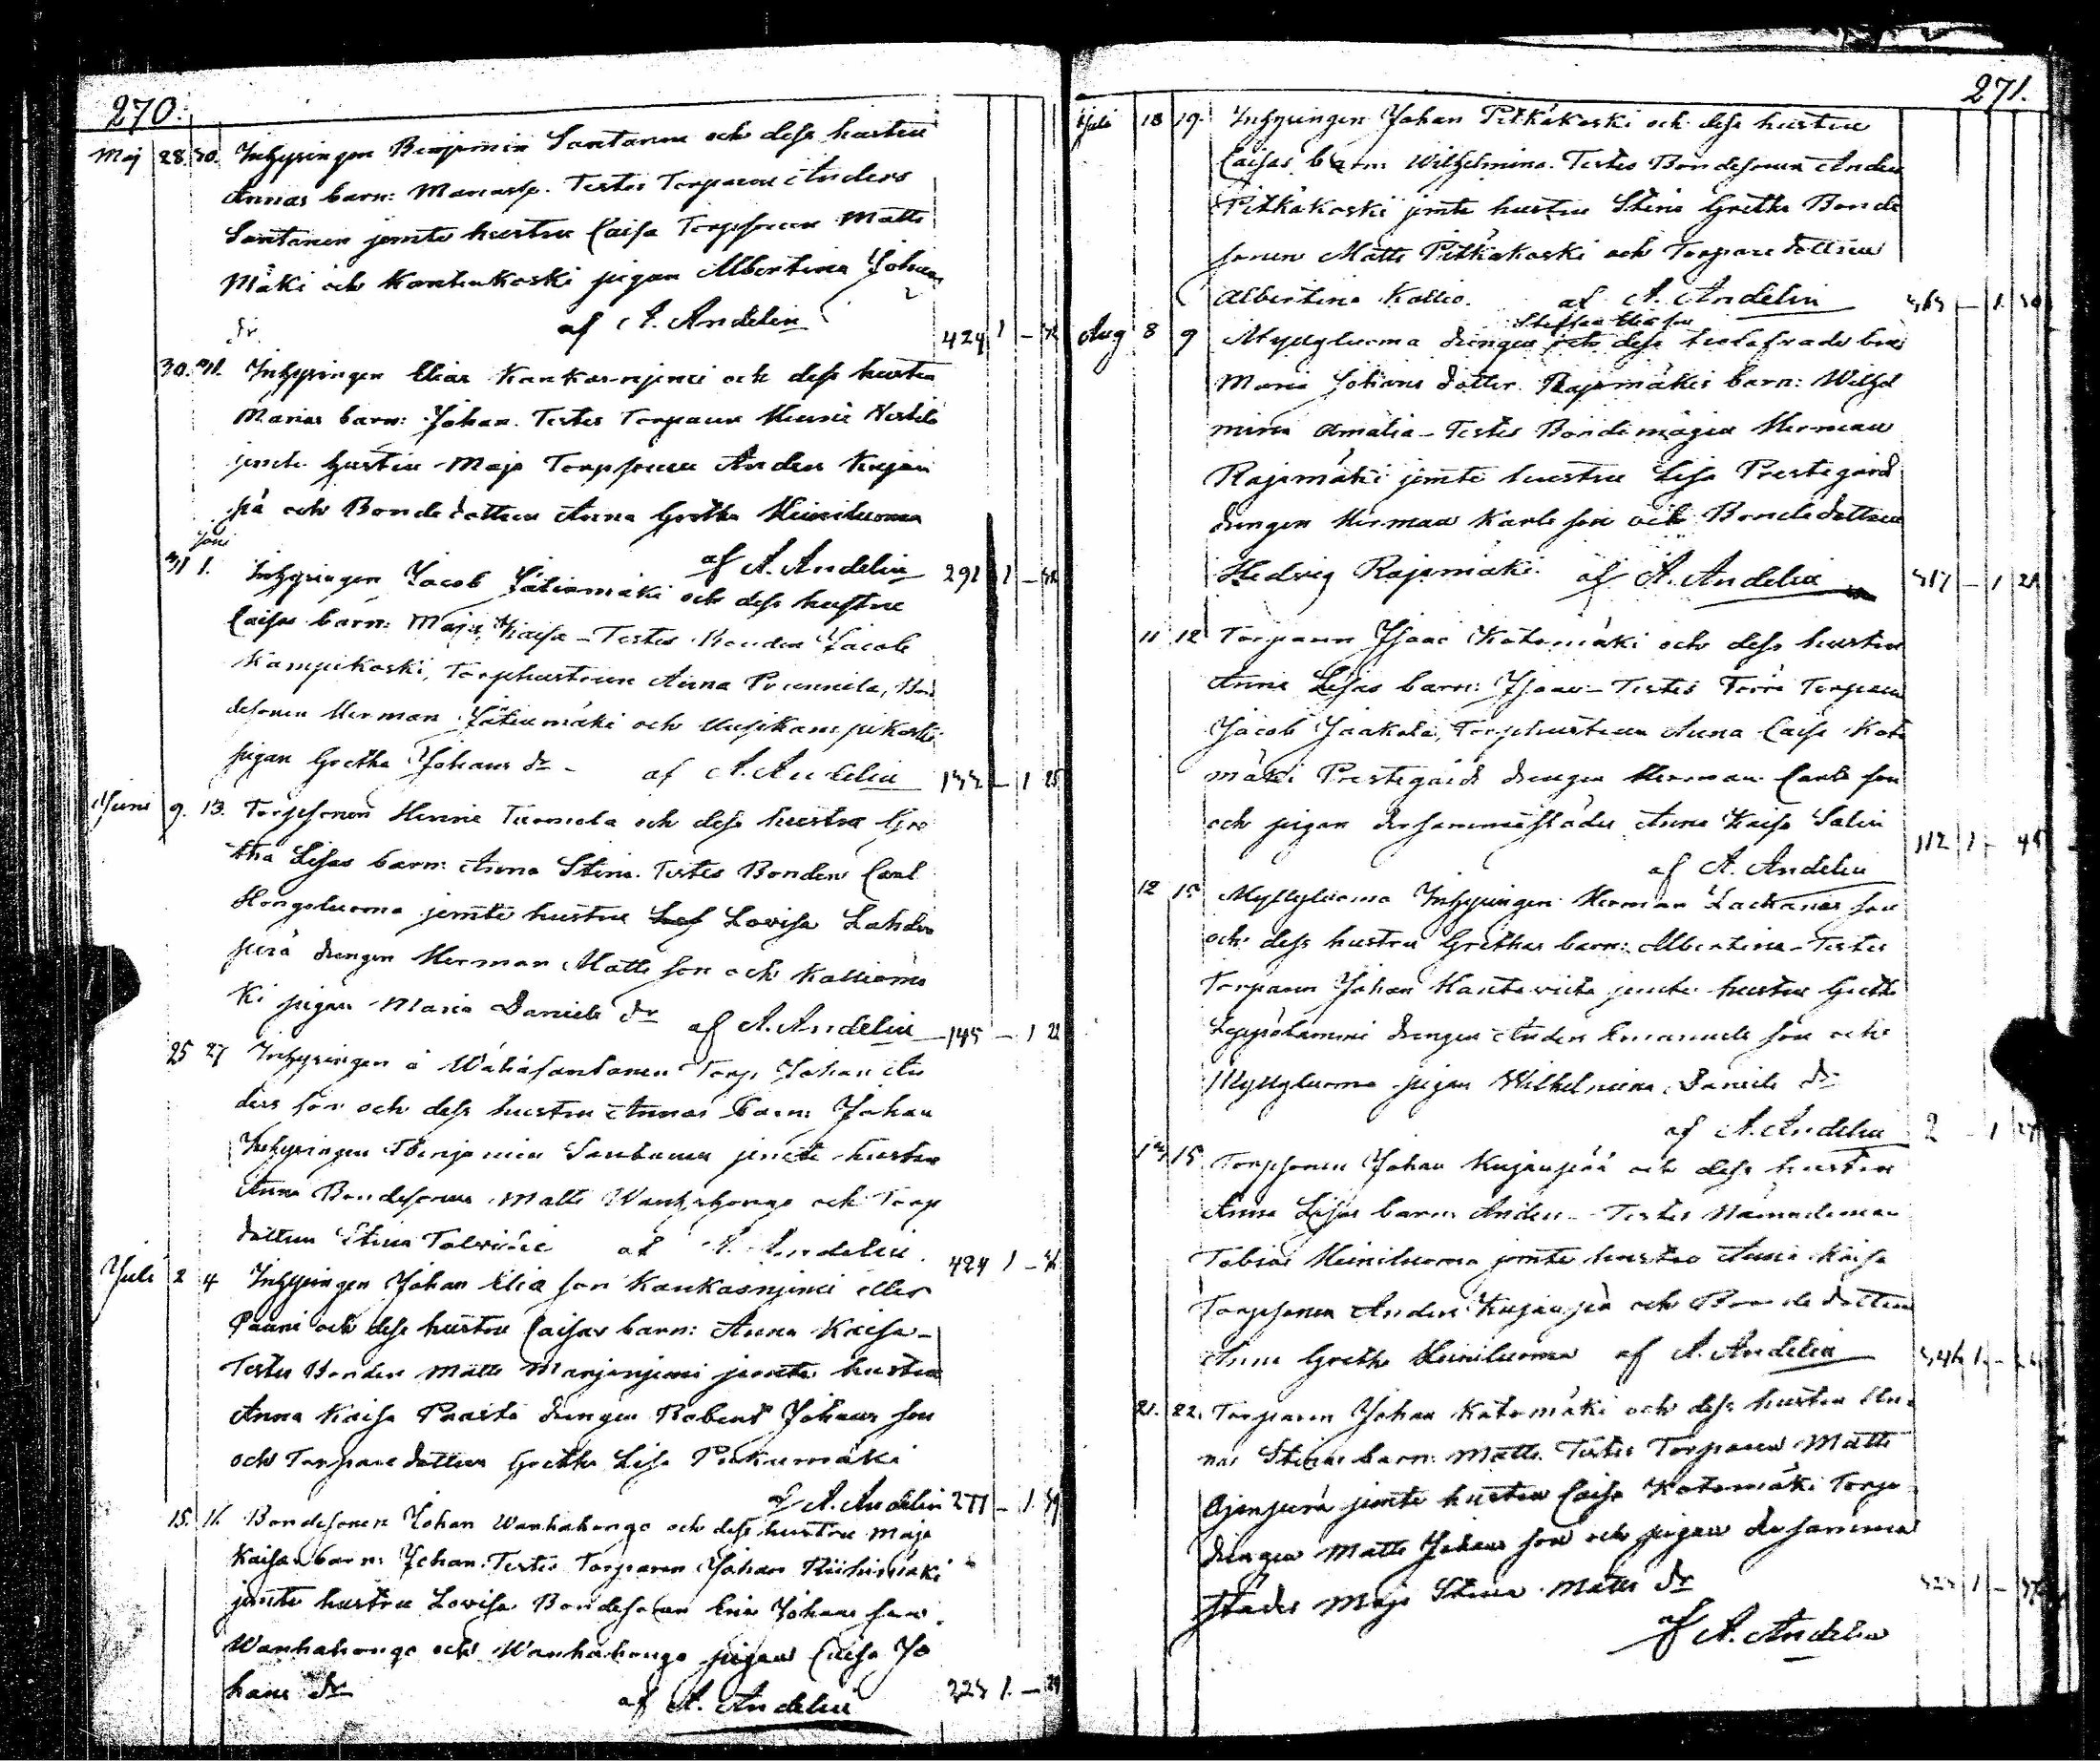 270.
Maj 28. 30. Inhysingen Benjamin Santanen och dess hustru
Annas barn: Manasse. Testes Torparen Anders
Santanen jemte hustru Caisa Torpsonen Matts
Mäki och Kantinkoski pigan Albertina Johans
dr. af A. Andelin 424 1 –
30. 31. Inhysingen Elias Kankasnjemi och dess hustru
Marias barn: Johan. Testes Torparen Henric
jemte hustru Maja Torpsonen Anders Kujan
pä och Bondedottren Anna Gretha Heiniluoma
af A. Andelin 292 1 –
Juni
31 1. Inhysingen Jacob Jätinmäki och dess hustru
Caisas barn: Maja Kaisa – Testes Bonden Jacob
Kampikoski, Torphustrun Anna Prunnila, Bon
desonen Herman Jätinmäki och Uusikampikoski
pigan Gretha Johans dr – af A. Andelin – 1 25
Juni 9. 13. Torpsonen Henric Tuomela och dess hustru Gre
tha Lisas barn: Anna Stina. Testes Bonden Carl
Hongoluoma jemte hustru Lovisa Lahden
perä drengen Herman Matts son och Kalliomä
ki pigan Maria Daniels dr af A. Andelin 145 – 1 22
25 27 Inhysingen å Wähäsantanen Torp Johan An
ders son och dess hustru Annas barn: Johan
Inhysingen Benjamin Santanen jemte hustru
Anna Bondesonen Matts Wanhahongo och Torp
dottren Stina Talvitie af A. Andelin. 424 1 –
Juli 2 4 Inhysingen Johan Elia son Kankasnjemi eller
Pauni och dess hustru Caisas barn: Anna Kaisa –
Testes Bonden Matts Marjanjemi jemte hustru
Anna Kaisa drengen Robert Johans son
och Torparedottren Gretha Lisa
af A. Andelin 277 – 1
15. 16. Bondesonen Johan Wanhahongo och dess hustru Maja
Kaisas barn: Johan. Testes Torparen Johan Riihimäki
jemte hustru Lovisa Bondesonen Eric Johans son
Wanhahongo och Wanhahongo pigan Caisa Jo
hans dr af A. Andelin 1. – 29
271.
Juli 18 19. Inhysingen Johan Pitkäkoski och dess hustru
Caisas barn: Wilhelmina. Testes Bondesonen Anders
Pitkäkoski jemte hustru Stina Gretha Bonde
sonen Matts Pitkäkoski och Torparedottren
Albertina Kallio. af A. Andelin – 1.
Steffan Elias son
Aug 8 9 Myllyluoma drengen och dess trolofvade brud
Maria Johans dotter Rajamäkis barn: Wilhel
mina Amalia – Testes Bondemågen Herman
Rajamäki jemte hustru Lisa Prestegård
drengen Herman Karls son och Bondedottren
Hedvig Rajamäki. af A. Andelin 317 – 1 21
11 12 Torparen Isaac Katomäki och dess hustru
Anna Lisas barn: Isaac – Testes Förre Torparen
Jacob Jaakola, Torphustrun Anna Caisa Kato
mäki Prestegårds drengen Herman Carls son
och pigan dersammastädes Anna Kaisa Salin
af A. Andelin 112 1 – 45
12 15 Myllyluoma Inhysingen Herman Zachariæ son
och dess hustru Grethas barn: Albertina – Testes
Torparen Johan jemte hustru Gretha
drengen Anders Emanuels son och
Myllyluoma pigan Wilhelmina Daniels dr
af A. Andelin 2 – 1 27
15 Torpsonen Johan Kujanpää och dess hustru
Anna Lisas barn: Anders – Testes Nämndeman
Tobias Heiniluoma jemte hustru Anna Kaisa
Torpsonen Anders Kujanpä och Bondedottren
Anna Gretha Heiniluoma af A. Andelin 1 –
21. 22. Torparen Johan Katomäki och dess hustru An
nas Stinas barn: Matts. Testes Torparen Matts
Ojanperä jemte hustru Caisa Katomäki Torp
drengen Matts Johans son och pigan dersamma
städes Maja Stina Matts dr 1 –
af A. Andelin